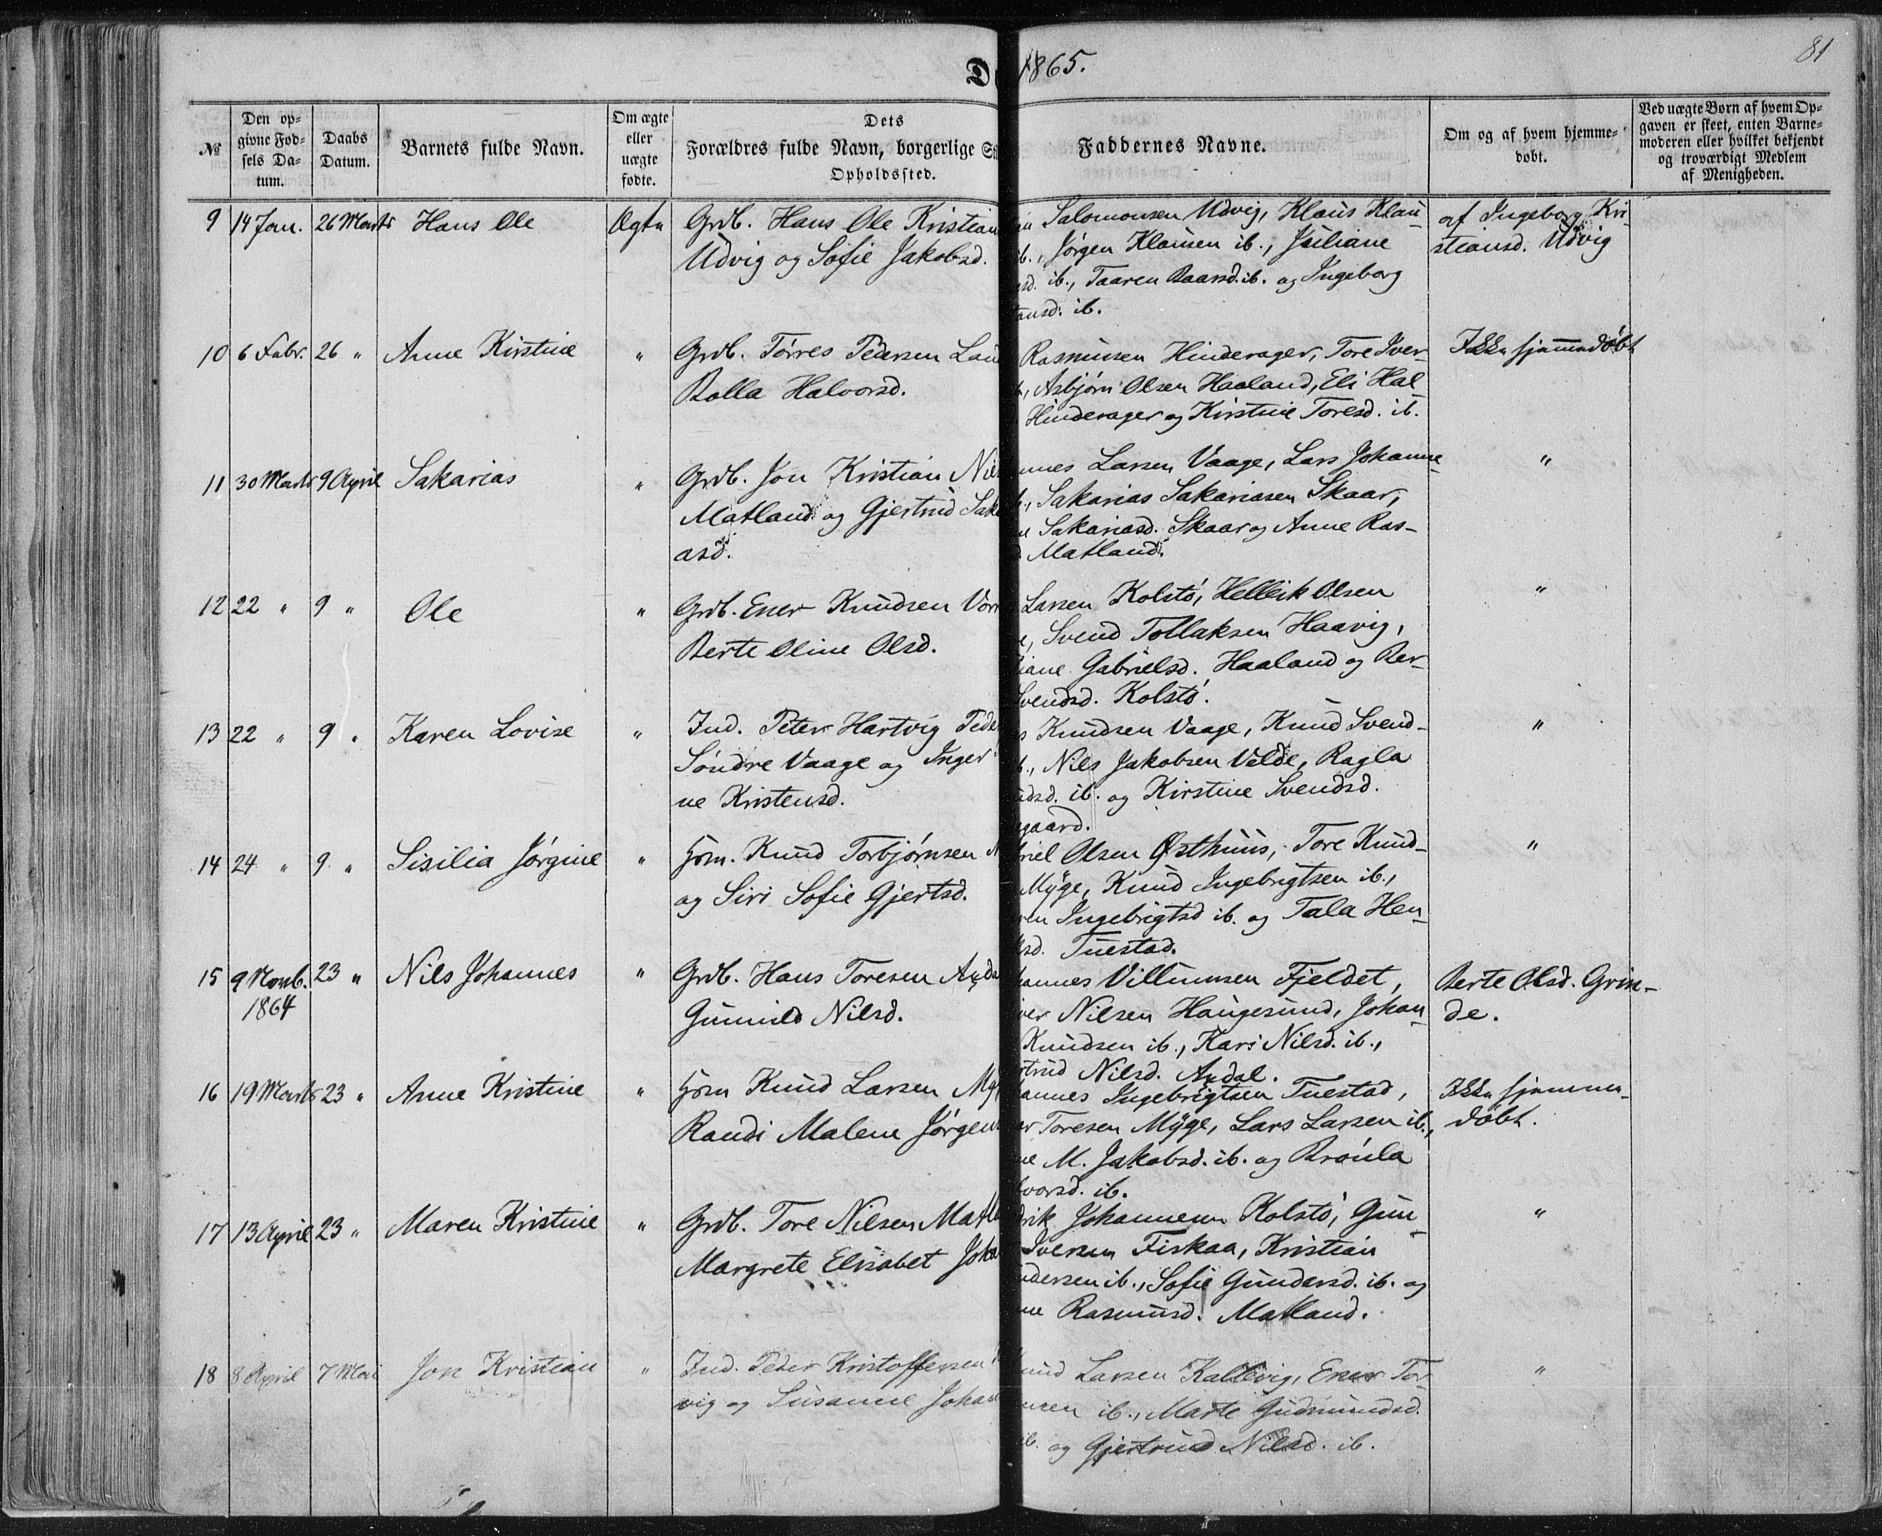 D
1865.
81
№
Den op-
givne Fød-
sels Da-
tum.
Daabs
Datum.
Barnets fulde Navn.
Om ægte
eller
uægte
fødte.
Dets
Forældres fulde Navn, borgerlige St
Opholdssted.
Faddernes Navne.
Om og af hvem hjemme-
døbt.
Ved uægte Børn af hvem Op-
gaven er skeet, enten Barne-
moderen eller hvilket bekjendt
og troværdigt Medlem
af Menigheden.
9 14 Jan. 26 Marts Hans Ole Ægte Grdb. Hans Ole Kristian
Udvig og Sofie Jakobsd.
Salomonsen Udvig, Klaus Klau-
b., Jørgen Klausen ib., Juliane
sd. ib., Taaren Baarsd. ib. og Ingeborg
ansd. ib.
af Ingeborg Kri-
stiansd. Udvig
10 6 Febr. 26 " Anne Kirstine " Grdb. Tørres Pedersen Lan
Bolla Halvorsd.
Rasmusen Hinderager, Tore Iver-
Asbjørn Olsen Haaland, Eli Hal
Hinderager og Kirstine Toresd. ib.
Ikke hjemmedøbt
11 30 Marts 9 April Sakarias " Grdb. Jon Kristian Niel
Matland og Gjertrud Saka
asd.
nnes Larsen Vaage, Lars Johanne
b., Sakarias Sakariasen Skaar,
Sakariasd. Skaar og Anne Ras-
Matland.
"
12 22 " 9 " Ole " Grdb. Ener Knudsen Vor
Berte Oline Olsd.
Larsen Kolstø, Hellik Olsen
e, Svend Tollaksen Haavig,
iane Gabrielsd. Haaland og Ber-
Svendsd. Kolstø.
"
13 22 " 9 " Karen Lovise " Ind. Peter Hartvig Peder
Søndre Vaage og Inger
ne Kristensd.
s Knudsen Vaage, Knud Svend-
b., Nils Jakobsen Velde, Ragla
udsd. ib. og Kirstine Svendsd.
gaard.
"
14 24 " 9 " Sisilia Jørgine " Hsm. Knud Torbjørnsen M
og Siri Sofie Gjertsd.
riel Olsen Østhuus, Tore Knud-
Myge, Knud Ingebrigtsen ib.,
ren Ingebrigtsd ib. og Tala Hen-
sd. Tuestad.
"
15 9 Novb. 1864 23 " Nils Johannes " Grdb. Hans Toresen Axda
Gunnild Nilsd.
hannes Villumsen Fjeldet,
ver Nilsen Haugesund, Johan-
Knudsen ib., Kari Nilsd. ib.,
rtrud Nilsd. Axdal.
Berte Olsd. Grin-
de.
16 19 Marts 23 " Anne Kristine " Hsm Knud Larsen Myg
Randi Malene Jørgen
hannes Ingebrigtsen Tuestad,
ar Toresen Myge, Lars Larsen ib.,
ne M. Jakobsd. ib. og Brønla
lvorsd. ib.
Ikke hjemme-
døbt.
17 13 April 23 " Maren Kristine " Grdb. Tore Nilsen Matla
Margrete Elisabet Joha
drik Johannesen Kolstø, Gun-
Iversen Fiskaa, Kristian
ndersen ib., Sofie Gundersd. ib. og
ne Rasmusd. Matland.
"
18 8 April 7 Mai Jon Kristian " Ind. Peder Kristoffersen
vig og Susanne Johan
nud Larsen Kallevig, Ener Tor-
nsen ib., Marte Gudmundsd.
ib. og Gjertrud Nilsd. ib.
"